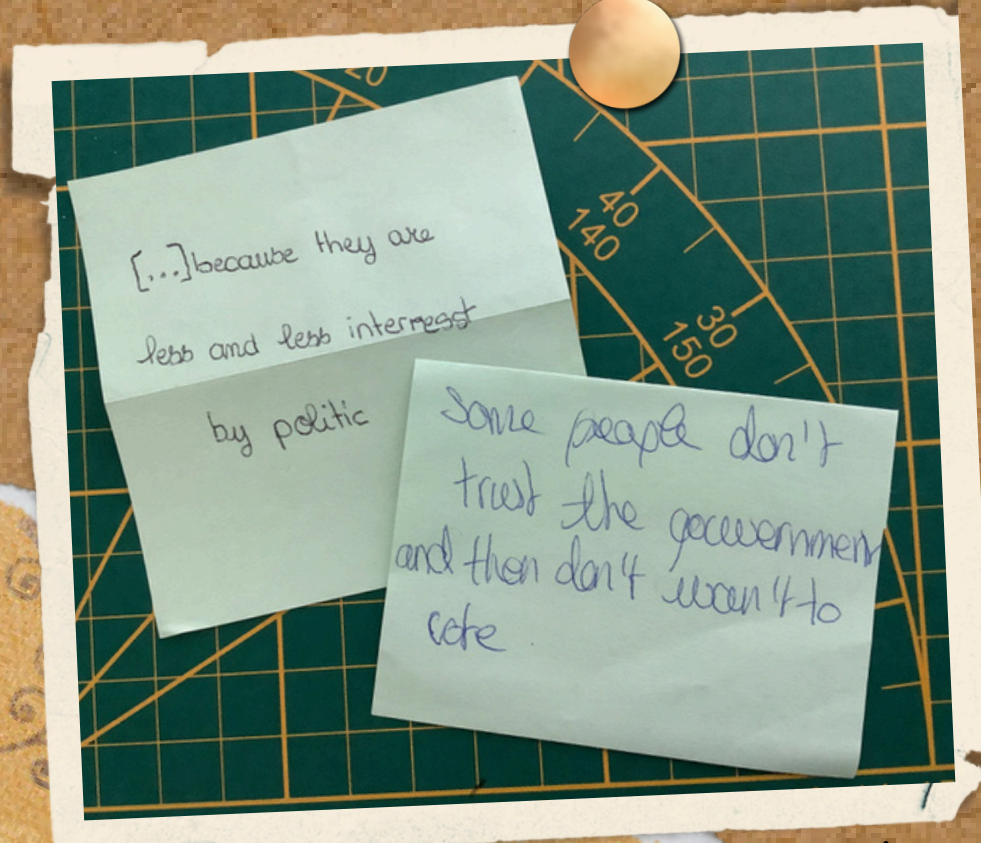 20
40
140
30
150
[...]because they are
less and less interresst
by politic
Some people don't
trust the gouvernment
and then don't wan't to
vote.